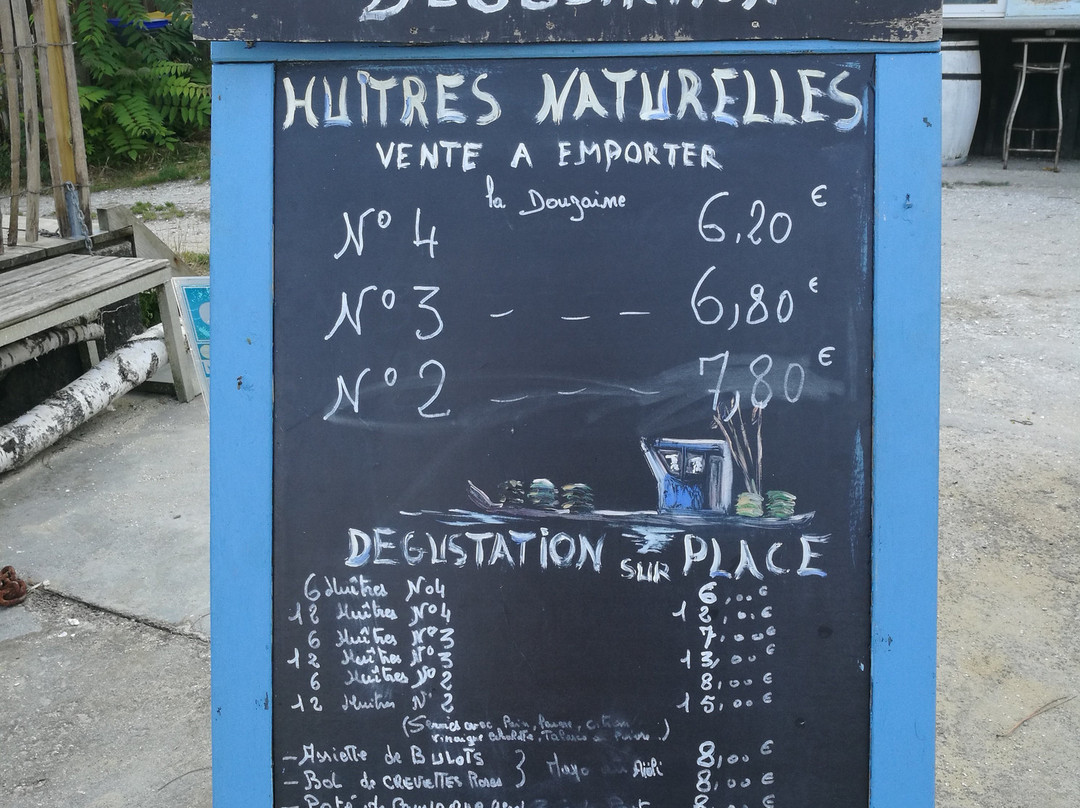 DEGUSTATION
HUÎTRES NATURELLES
VENTE A EMPORTER
la Douzaine
N° 4 6,20 €
N° 3 - - - 6,80 €
N° 2 - - - 7,80 €
DEGUSTATION SUR PLACE
6 Huîtres N°4 6,00 €
12 Huîtres N°4 12,00 €
6 Huîtres N°3 7,00 €
12 Huîtres N°3 13,00 €
6 Huîtres N°2 8,00 €
12 Huîtres N°2 15,00 €
(Servies avec, Pain, beurre, citron
vinaigre échalotte, Tabasco Poivre..)
- Assiette de BULOTS } Mayo ou Aïoli 8,00 €
- Bol de CREVETTES Roses 8,00 €
- Paté de